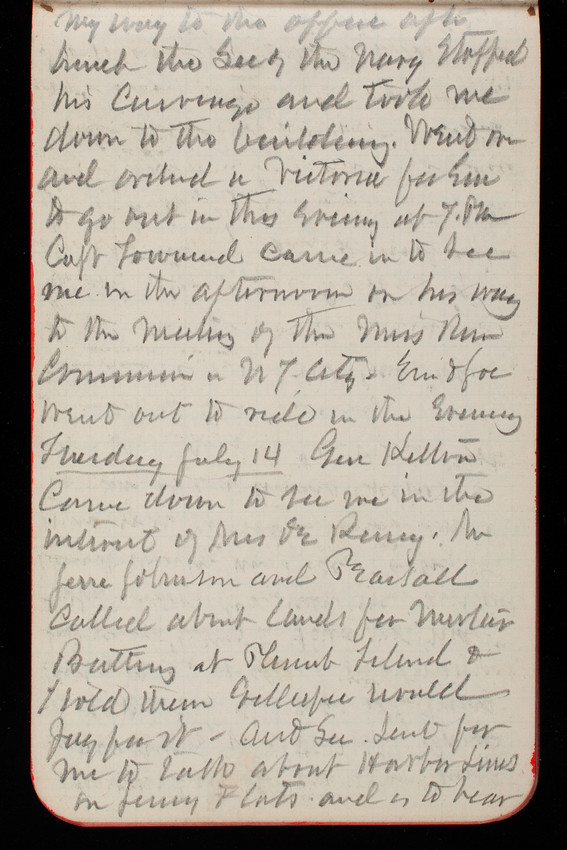 My way to the office after
lunch the Secy the Navy stopped
his carriage and took me
down to the building. Went on
and ordered a Victoria for Em
to go out in this evening at 7. PM
Capt Townsend came in to see
me in the afternoon on his way
to the meeting of the Miss River
Commission in N Y City. Em & Joe
went out to ride in the Evening
Tuesday July 14 Gen Kelton
Came down to see me in the
interest of Mrs De Remy. Mr
Jere Johnson and Pearsall
called about lands for Mortar
Battery at Plumb Island &
I told them Gillespie would
pay for it - Asst Sec. sent for
me to talk about Harbor Lines
on Flats and is to hear